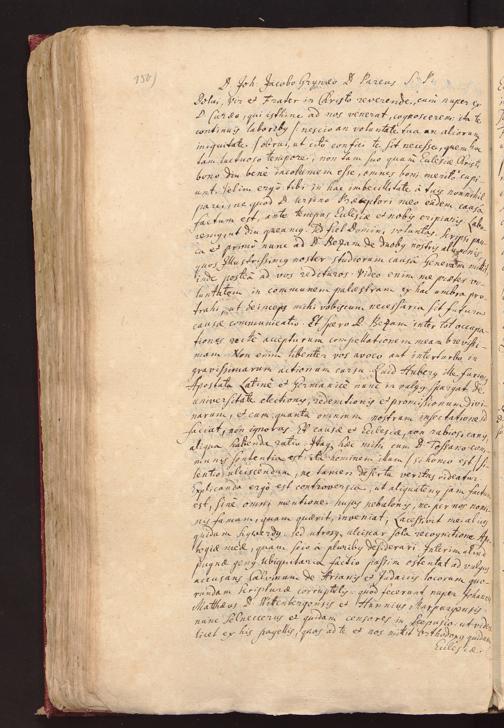 150)
D. Joh. Jacobo Grynæo D. Pareus S. P.
Dolui, Vir et Frater in Christo reverende, cum nuper ex
D. Curæo, qui isthinc ad nos venerat, cognoscerem ita te
continuis laboribus, nescio an voluntate tua an aliorum
iniquitate obrui, ut citò confici te sit necesse, quem hoc
tam luctuoso tempore, non tam suo quàm Ecclesiæ Christi
bono diu bene incolumem esse, omnes boni meritò cupi-
unt. Velim ergò tibi in hac imbecillitate à tuis nonnihil
parci, ne quod D. Ursino Præceptori meo eadem causa
factum est, ante tempus Ecclesiæ et nobis eripiatis
diu queamus. Sed fiet Domini voluntas. Scripsi pau-
ca et primò nunc ad D. Bezam de duobus nostris alumnis
quos Illustrissimus noster studiorum causâ Genevam mittit
inde posteà ad vos redituros. Video enim me præter vo-
luntatem in communem palæstram ex hac umbra pro-
trahi, ut deinceps mihi vobiscum necessaria sit futura
causæ communicatio. Et spero D. Bezam inter tot occupa-
tiones rectè accepturum compellationem meam brevissi-
mam. Non enim libenter vos avoco aut interturbo in
gravissimarum actionum cursu. Quid Huberus ille furiosus
Apostata Latinè et Germanicè nunc in vulgus spargat de
universitate electionis, redemtionis et promissionum divi-
narum, et cum quanta omnium nostrum insectatione id
faciat, non ignoras. Et causæ et Ecclesiæ, non rabiosi canis,
aliqua habenda ratio. Itaque hæc mihi cum D. Tossano com-
munis sententia est: ita hominem illum silentio
ulciscendum, ne tamen deserta veritas videatur.
Explicanda ergò est controversia, ut aliquoties jam factum
est, sine omni mentione hujus nebulonis, ne per nos nomi-
nis famam, quam quærit, inveniat. Lacessivit me alius
quidam sed utrosque ulciscar sola recognitione Apo-
logiæ meæ, quam scio à pluribus desiderari. Interim aliud
pugnæ genus Ubiquitaria factio passim ostentat ad vulgus
accusans Calvinum de Arianis et Judaicis locorum quo-
rundam Scripturæ corruptelis: quod fecerunt nuper Johannes
Matthæus D. Witenbergensis et Hunnius Marpurgensis:
nunc Selneccerus et quidam censores in Scepusio: ut vide-
licet ex his pagellis, quas ad te et nos mittit orthodoxus quidam
Ecclesiæ